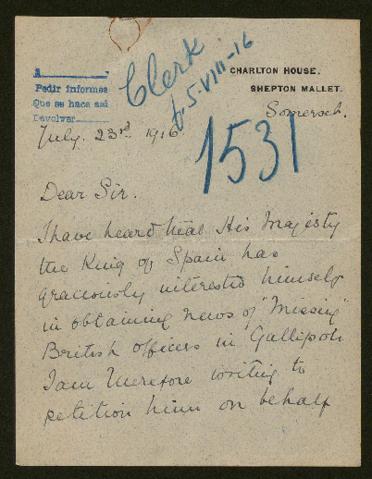 A
Pedir informes
Que se haca asi
Devolver
Clerk
5-VIII-16
CHARLTON HOUSE.
SHEPTON MALLET.
Somerset.
July. 23rd 1916
1531
Dear Sir.
I have heard that His Majesty
the King of Spain has
graciously interested himself
in obtaining news of "Missing"
British officers in Gallipoli
I am therefore writing to
petition him on behalf